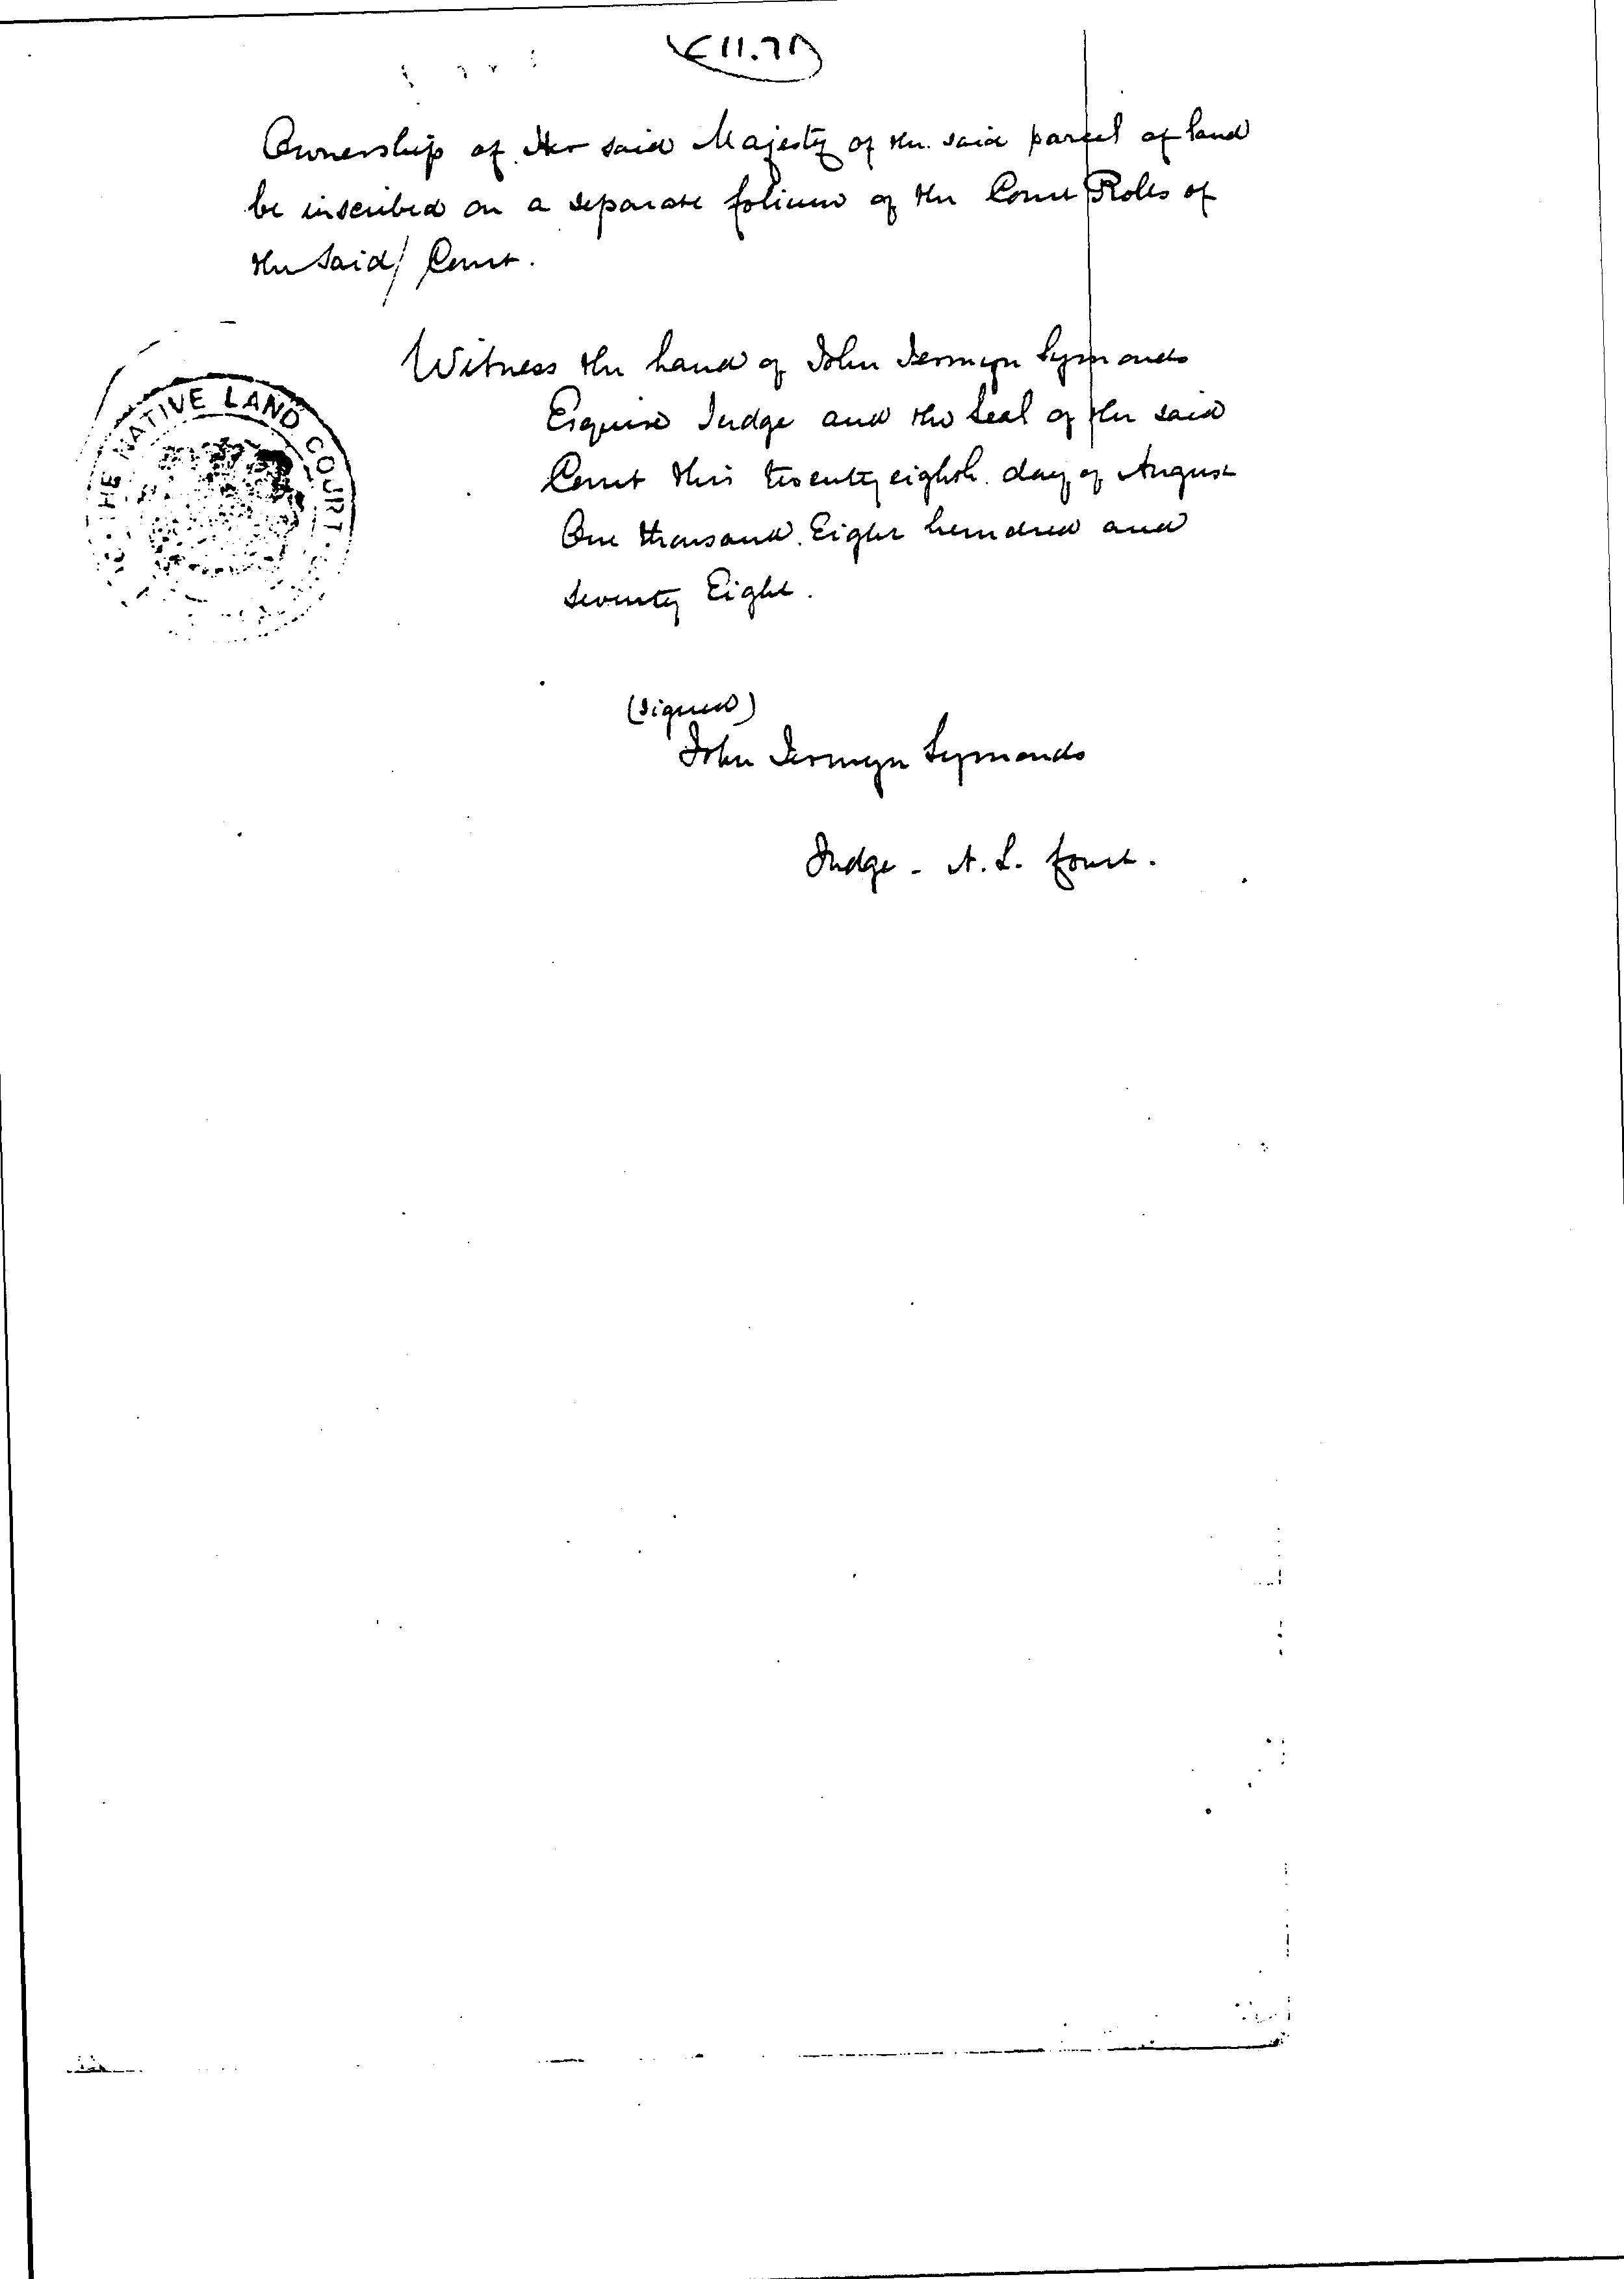 Ownership of Her said Majesty of the said parcel of land
be inscribed on a separate folium of the Court Rolls of
the Said/ Court.
THE NATIVE LAND COURT
Witness the hand of John Jermyn Symonds
Esquire Judge and the Seal of the said
Court this twenty eighth day of August
One thousand Eight hundred and
seventy Eight.
(signed)
John Jermyn Symonds
Judge - N. L. Court.